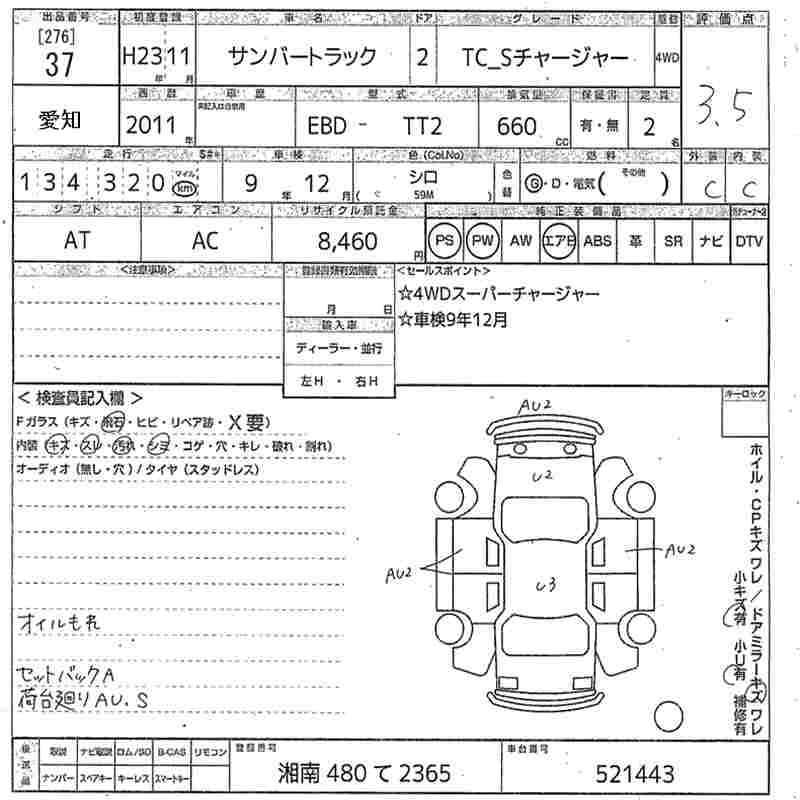 出品番号 初度登録 車名 ドア グレード 駆動 評価点
[276] 37 H23 11 年 月 サンバートラック 2 TC_Sチャージャー 4WD 3.5
西暦 車歴 型式 排気量 保証書 定員
愛知 2011 年 EBD - TT2 660 CC 有・無 2 名
走行 S#* 車検 色(Col.No) 燃料 外装 内装
134320 マイル km 9 年 12 月 シロ ( 59M ) 色替 G・D・電気( その他 ) C C
シフト エアコン リサイクル預託金 純正装備品
AT AC 8,460 円 PS PW AW エアB ABS 革 SR ナビ DTV
<注意事項> 登録書類有効期限 <セールスポイント>
月 日 ☆4WDスーパーチャージャー
輸入車 ☆車検9年12月
ディーラー・並行
左H ・ 右H
<検査員記入欄> キーロック
Fガラス(キズ・飛石・ヒビ・リペア跡・X要)
内装(キズ・スレ・汚れ・シミ・コゲ・穴・キレ・破れ・割れ)
オーディオ(無し・穴)/タイヤ(スタッドレス)
AU2
U2
AU2 AU2
U3
ホイル・CPキズ ワレ/ドアミラーキズ ワレ
小キズ有 小U有 補修有
オイルもれ
セットバックA
荷台廻りAU.S
後送品 取説 ナビ取説 ロム/SD B-CAS リモコン 登録番号 車台番号
ナンバー スペアキー キーレス スマートキー 湘南 480 て 2365 521443